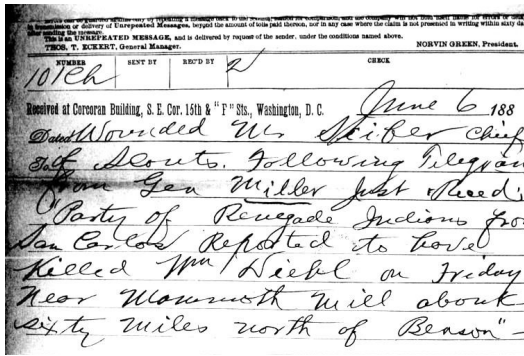 in transmission or delivery of Unrepeated Messages, beyond the amount of tolls paid thereon, nor in any case where the claim is not presented in writing within sixty da
after sending the message.
This is an UNREPEATED MESSAGE, and is delivered by request of the sender, under the conditions named above.
THOS. T. ECKERT, General Manager. NORVIN GREEN, President.
NUMBER SENT BY REC'D BY CHECK
101 Ch 2
Received at Corcoran Building, S. E. Cor. 15th & "F" Sts., Washington, D. C. June 6 188
Dated Wounded Mr Seiber chief
To of Scouts. Following Telegram
from Gen Miller Just Recd;
"Party of Renegade Indians from
San Carlos Reported to have
Killed Wm Diehl on Friday
Near Mammoth Mill about
sixty miles north of Benson" -